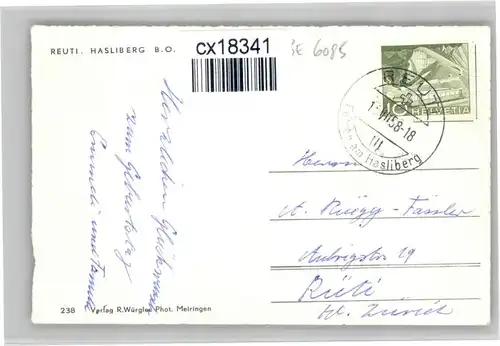 REUTI. HASLIBERG B.O.
CX18341
SE 6085
10 HELVETIA
REUTI
58-18
Ferien am Hasliberg
Herzlichen Glückwunsch
zum Geburtstag
und
Herrn
A. Rüegg-Fässler
19
Rüti
Zürich
238 Verlag R. Würgler Phot. Meiringen